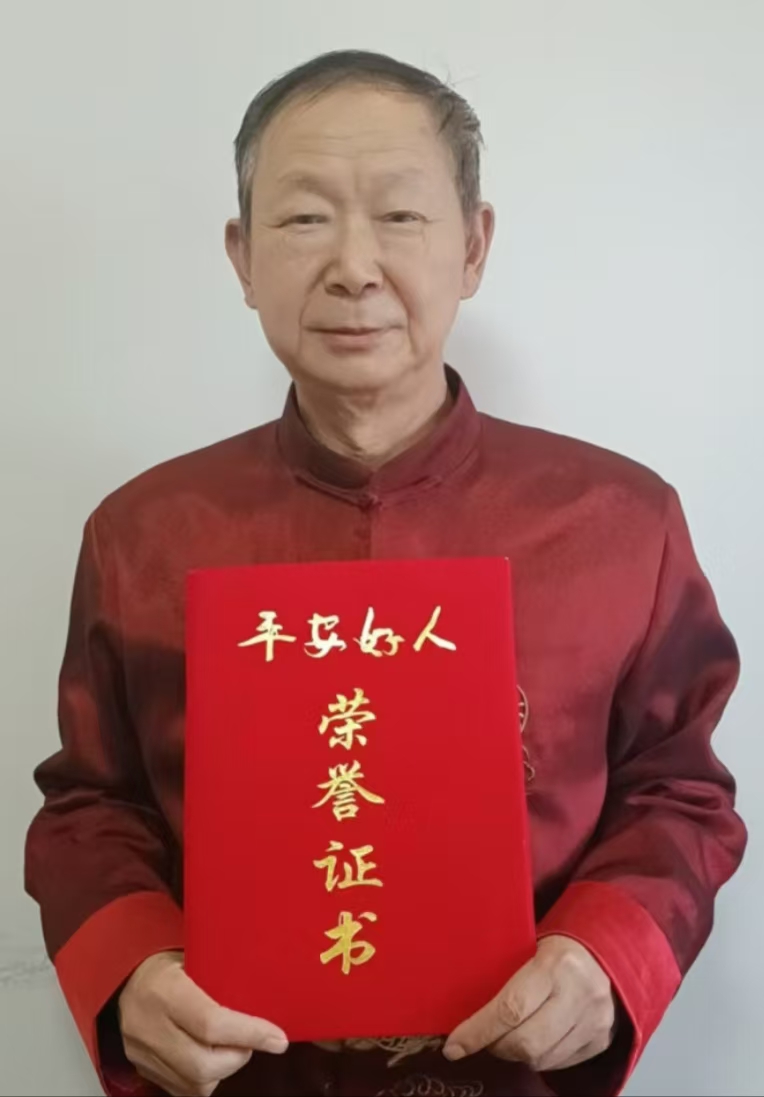 平安好人
荣誉证书